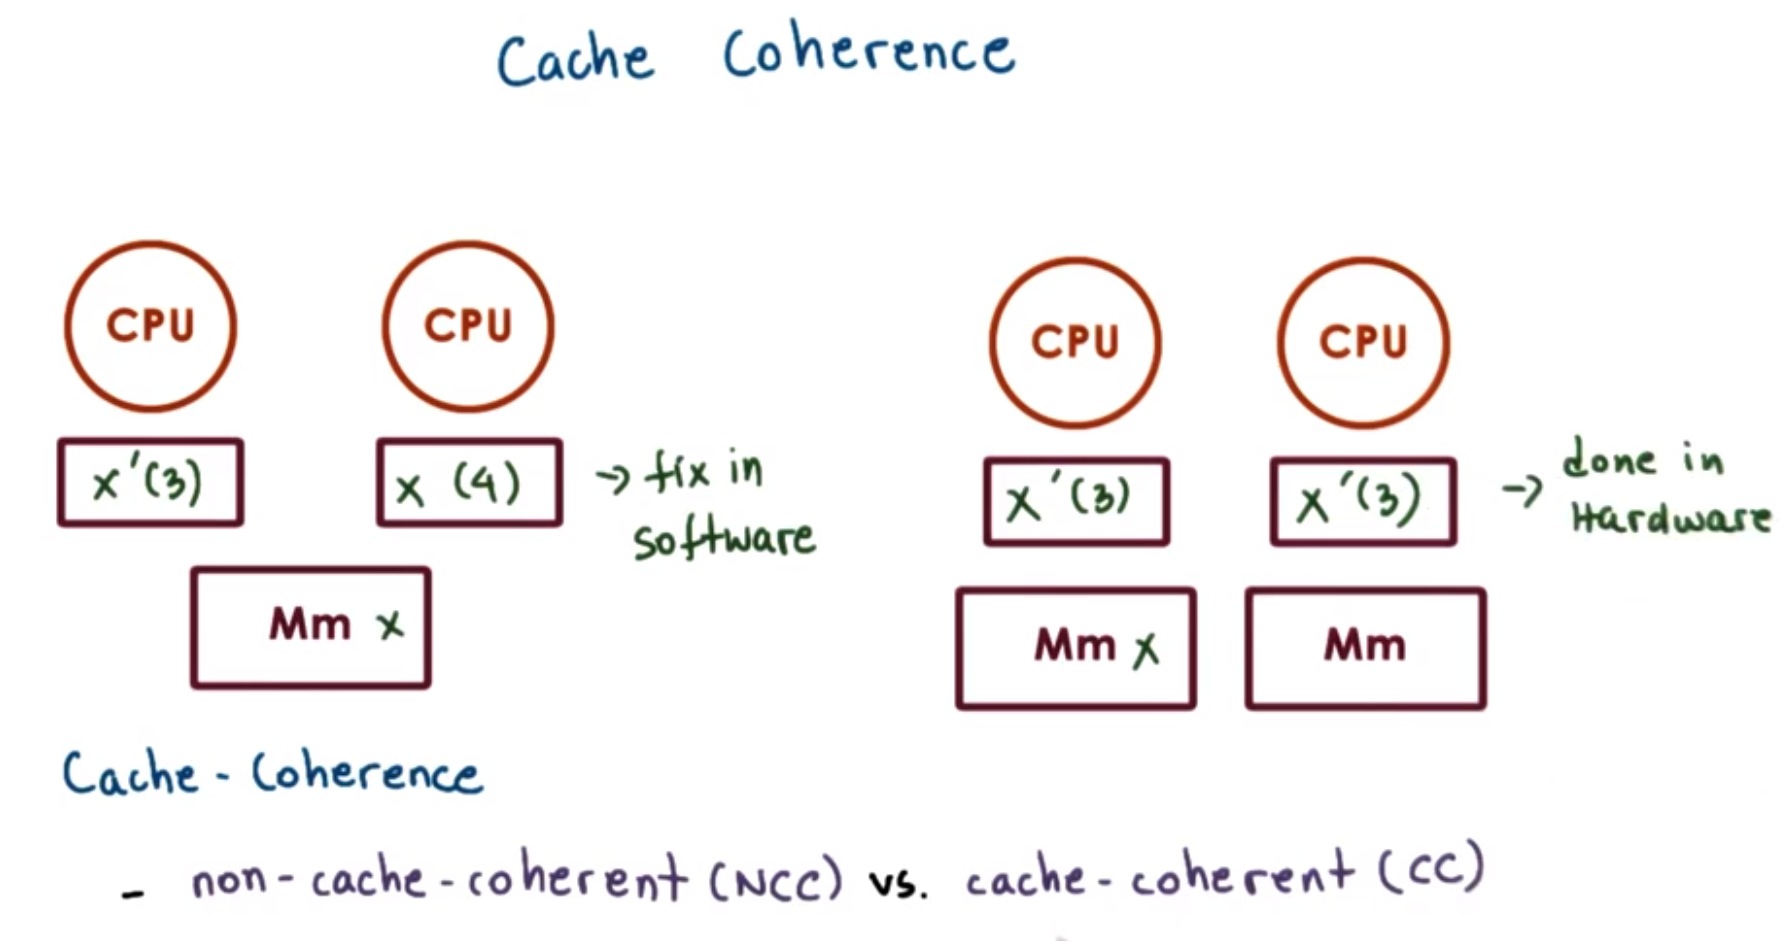 Cache Coherence
CPU
CPU
x'(3)
x (4)
→ fix in
software
Mm x
CPU
CPU
x'(3)
x'(3)
→ done in
Hardware
Mm x
Mm
Cache - Coherence
- non-cache-coherent (NCC) vs. cache-coherent (CC)